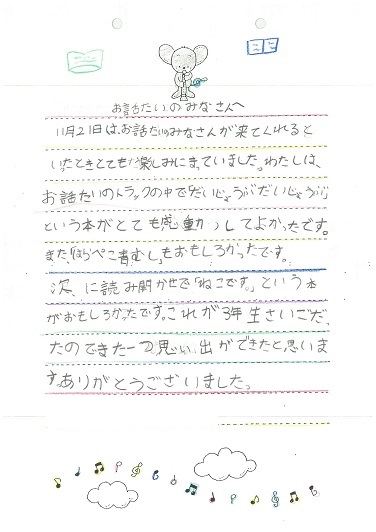 お話たいのみなさんへ
11月21日は、お話たいのみなさんが来てくれると
いったときとても楽しみにまっていました。わたしは、
お話たいのトラックの中で「だいじょうぶだいじょうぶ」
という本がとても感動してよかったです。
また、「はらぺこ青むし」もおもしろかったです。
次に読み聞かせで「ねこです。」という本
がおもしろかったです。これが3年生さいごだっ
たのできた一つ思い出ができたと思いま
す。ありがとうございました。